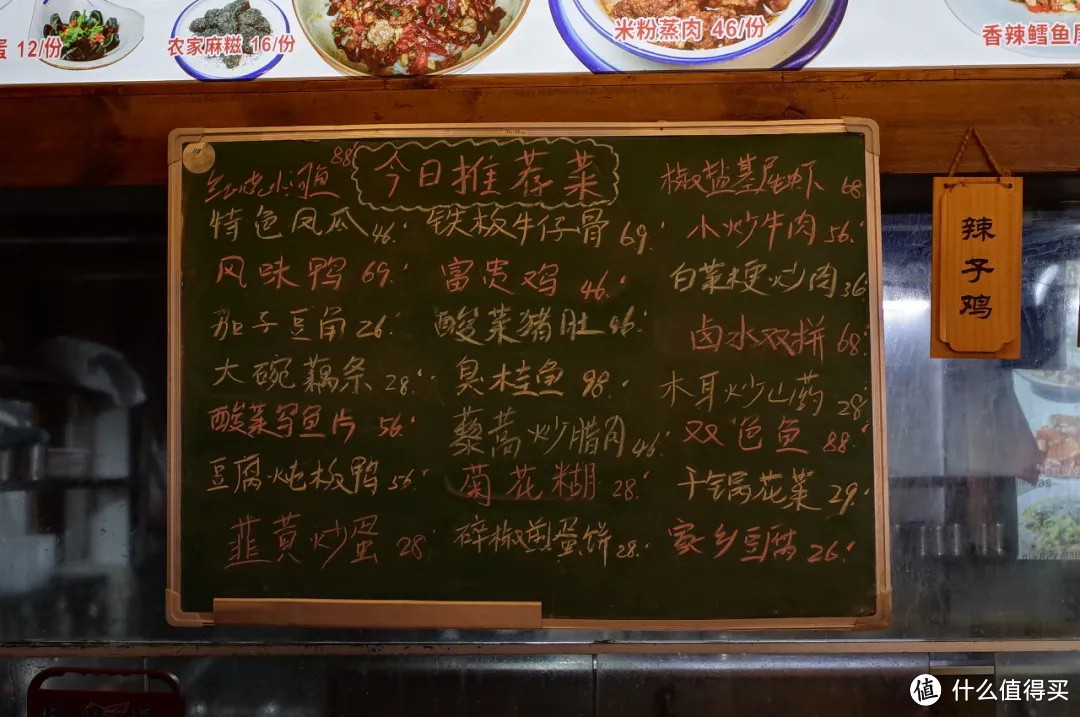 蛋 12/份
农家麻糍 16/份
米粉蒸肉 46/份
香辣鳕鱼
今日推荐菜
红烧小河鱼 88
椒盐基尾虾 68
特色凤瓜 46
铁板牛仔骨 69
小炒牛肉 56
风味鸭 69
富贵鸡 46
白菜梗炒肉 36
茄子豆角 26
酸菜猪肚 46
卤水双拼 68
大碗藕条 28
臭桂鱼 98
木耳炒山药 28
酸菜乌鱼片 56
藜蒿炒腊肉 46
双色鱼 88
豆腐炖板鸭 56
菊花糊 28
干锅花菜 29
韭黄炒蛋 28
碎椒煎蛋饼 28
家乡豆腐 26
辣子鸡
值 什么值得买